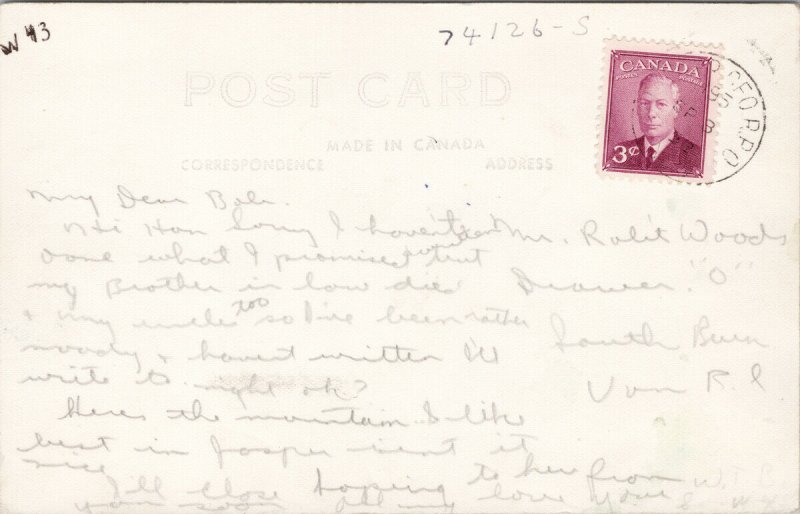 W 43
74126-S
POST CARD
MADE IN CANADA
CORRESPONDENCE
ADDRESS
CANADA
POSTES POSTAGE
3¢
My Dear Bob.
Hi Hon Sorry I haven't
done what I promised but
my Brother in law died
& my uncle too so I've been rather
moody & havent written Ill
write to-night ok?
Heres the mountain I like
best in Jasper isent it
nice
I'll close hoping to hear from
you soon All my love
Mr. Robt Woods
Drawer. "O"
South Burn
Van